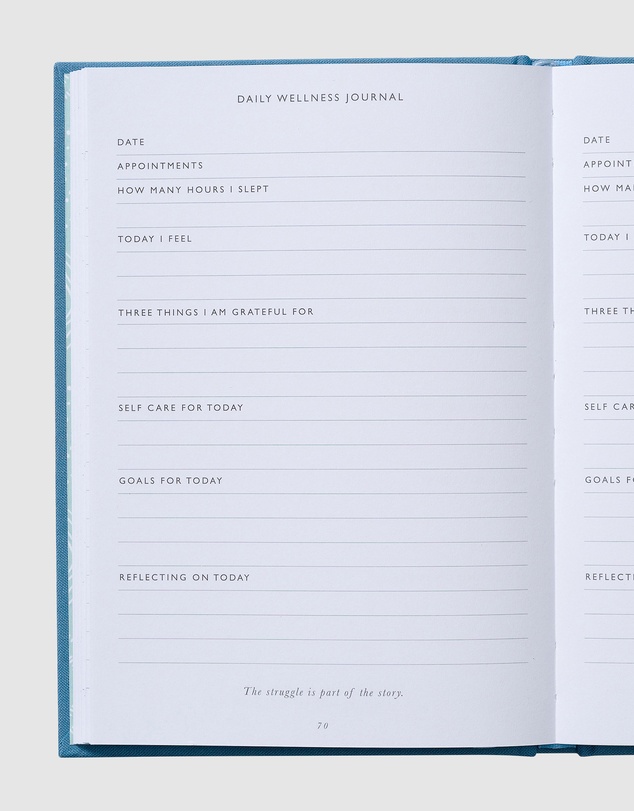 DAILY WELLNESS JOURNAL
DATE
APPOINTMENTS
HOW MANY HOURS I SLEPT
TODAY I FEEL
THREE THINGS I AM GRATEFUL FOR
SELF CARE FOR TODAY
GOALS FOR TODAY
REFLECTING ON TODAY
The struggle is part of the story.
70
DATE
APPOINT
HOW MA
TODAY I
THREE TH
SELF CAR
GOALS FO
REFLECTI